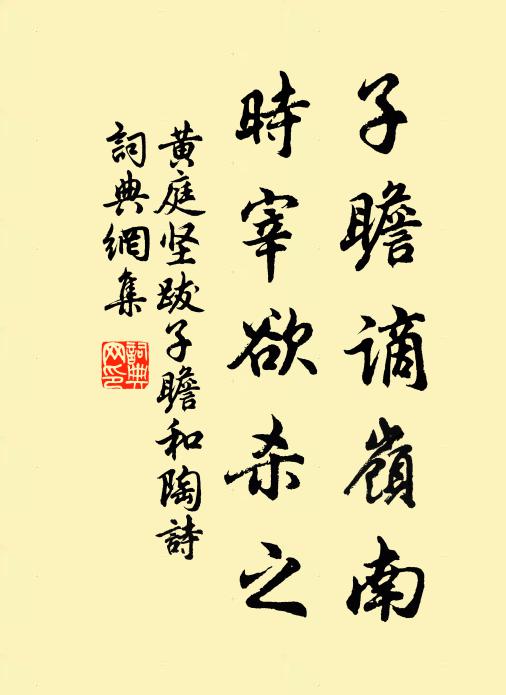 子瞻谪嶺南
時宰欲杀之
黄庭坚跋子瞻和陶詩
詞典網集
詞典
网印